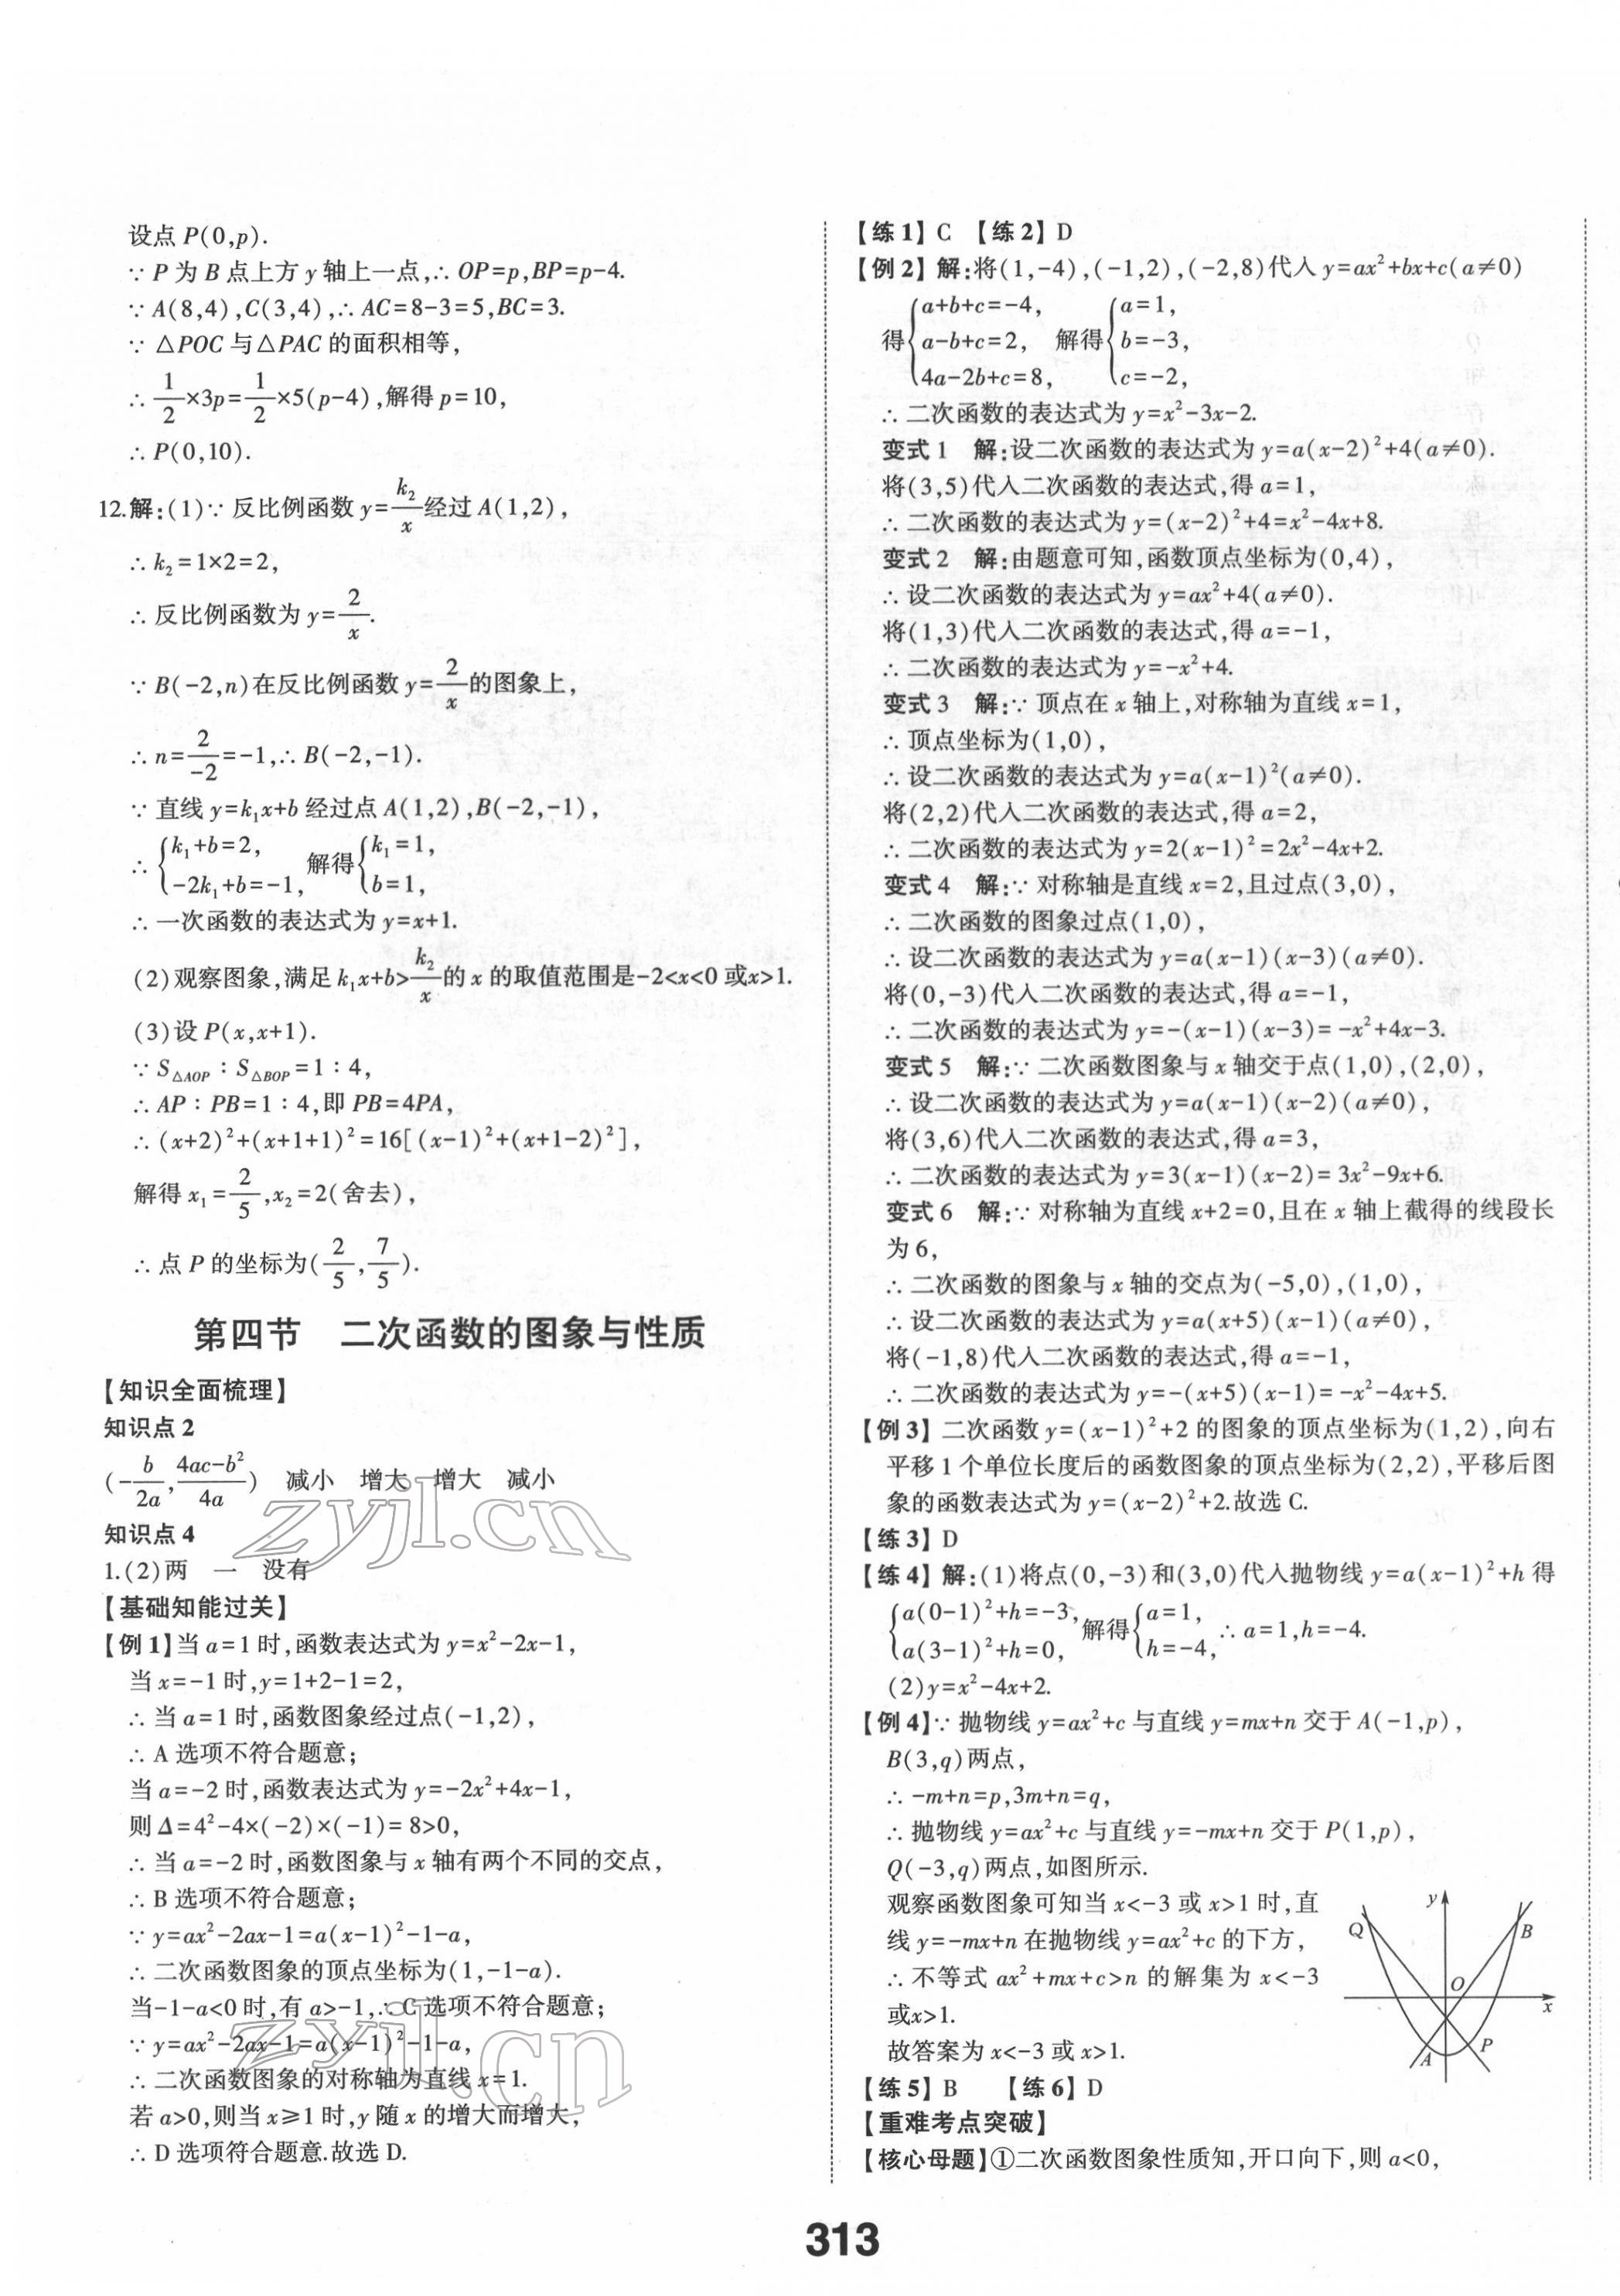 设点 P(0,p).
∵ P 为 B 点上方 y 轴上一点,∴ OP=p,BP=p-4.
∵ A(8,4),C(3,4),∴ AC=8-3=5,BC=3.
∵ △POC 与△PAC 的面积相等,
∴ 1/2×3p=1/2×5(p-4),解得 p=10,
∴ P(0,10).
12.解:(1)∵ 反比例函数 y=k₂/x 经过 A(1,2),
∴ k₂=1×2=2,
∴ 反比例函数为 y=2/x.
∵ B(-2,n)在反比例函数 y=2/x 的图象上,
∴ n=2/-2=-1,∴ B(-2,-1).
∵ 直线 y=k₁x+b 经过点 A(1,2),B(-2,-1),
∴ {k₁+b=2, -2k₁+b=-1, 解得{k₁=1, b=1,
∴ 一次函数的表达式为 y=x+1.
(2)观察图象,满足 k₁x+b>k₂/x 的 x 的取值范围是-2<x<0 或x>1.
(3)设 P(x,x+1).
∵ S△AOP∶S△BOP=1∶4,
∴ AP∶PB=1∶4,即 PB=4PA,
∴ (x+2)²+(x+1+1)²=16[(x-1)²+(x+1-2)²],
解得 x₁=2/5,x₂=2(舍去),
∴ 点 P 的坐标为(2/5,7/5).
第四节 二次函数的图象与性质
【知识全面梳理】
知识点 2
(-b/2a,4ac-b²/4a) 减小 增大 增大 减小
知识点 4
1.(2)两 一 没有
【基础知能过关】
【例 1】当 a=1 时,函数表达式为 y=x²-2x-1,
当 x=-1 时,y=1+2-1=2,
∴ 当 a=1 时,函数图象经过点(-1,2),
∴ A 选项不符合题意;
当 a=-2 时,函数表达式为 y=-2x²+4x-1,
则 Δ=4²-4×(-2)×(-1)=8>0,
∴ 当 a=-2 时,函数图象与 x 轴有两个不同的交点,
∴ B 选项不符合题意;
∵ y=ax²-2ax-1=a(x-1)²-1-a,
∴ 二次函数图象的顶点坐标为(1,-1-a).
当-1-a<0 时,有 a>-1,∴ C 选项不符合题意;
∵ y=ax²-2ax-1=a(x-1)²-1-a,
∴ 二次函数图象的对称轴为直线 x=1.
若 a>0,则当 x≥1 时,y 随 x 的增大而增大,
∴ D 选项符合题意.故选 D.
【练 1】C 【练 2】D
【例 2】解:将(1,-4),(-1,2),(-2,8)代入 y=ax²+bx+c(a≠0)
得{a+b+c=-4, a-b+c=2, 4a-2b+c=8, 解得{a=1, b=-3, c=-2,
∴ 二次函数的表达式为 y=x²-3x-2.
变式 1 解:设二次函数的表达式为 y=a(x-2)²+4(a≠0).
将(3,5)代入二次函数的表达式,得 a=1,
∴ 二次函数的表达式为 y=(x-2)²+4=x²-4x+8.
变式 2 解:由题意可知,函数顶点坐标为(0,4),
∴ 设二次函数的表达式为 y=ax²+4(a≠0).
将(1,3)代入二次函数的表达式,得 a=-1,
∴ 二次函数的表达式为 y=-x²+4.
变式 3 解:∵ 顶点在 x 轴上,对称轴为直线 x=1,
∴ 顶点坐标为(1,0),
∴ 设二次函数的表达式为 y=a(x-1)²(a≠0).
将(2,2)代入二次函数的表达式,得 a=2,
∴ 二次函数的表达式为 y=2(x-1)²=2x²-4x+2.
变式 4 解:∵ 对称轴是直线 x=2,且过点(3,0),
∴ 二次函数的图象过点(1,0),
∴ 设二次函数的表达式为 y=a(x-1)(x-3)(a≠0).
将(0,-3)代入二次函数的表达式,得 a=-1,
∴ 二次函数的表达式为 y=-(x-1)(x-3)=-x²+4x-3.
变式 5 解:∵ 二次函数图象与 x 轴交于点(1,0),(2,0),
∴ 设二次函数的表达式为 y=a(x-1)(x-2)(a≠0),
将(3,6)代入二次函数的表达式,得 a=3,
∴ 二次函数的表达式为 y=3(x-1)(x-2)=3x²-9x+6.
变式 6 解:∵ 对称轴为直线 x+2=0,且在 x 轴上截得的线段长
为 6,
∴ 二次函数的图象与 x 轴的交点为(-5,0),(1,0),
∴ 设二次函数的表达式为 y=a(x+5)(x-1)(a≠0),
将(-1,8)代入二次函数的表达式,得 a=-1,
∴ 二次函数的表达式为 y=-(x+5)(x-1)=-x²-4x+5.
【例 3】二次函数 y=(x-1)²+2 的图象的顶点坐标为(1,2),向右
平移 1 个单位长度后的函数图象的顶点坐标为(2,2),平移后图
象的函数表达式为 y=(x-2)²+2.故选 C.
【练 3】D
【练 4】解:(1)将点(0,-3)和(3,0)代入抛物线 y=a(x-1)²+h 得
{a(0-1)²+h=-3, a(3-1)²+h=0, 解得{a=1, h=-4, ∴ a=1,h=-4.
(2)y=x²-4x+2.
【例 4】∵ 抛物线 y=ax²+c 与直线 y=mx+n 交于 A(-1,p),
B(3,q)两点,
∴ -m+n=p,3m+n=q,
∴ 抛物线 y=ax²+c 与直线 y=-mx+n 交于 P(1,p),
Q(-3,q)两点,如图所示.
观察函数图象可知当 x<-3 或 x>1 时,直
线 y=-mx+n 在抛物线 y=ax²+c 的下方,
∴ 不等式 ax²+mx+c>n 的解集为 x<-3
或x>1.
故答案为 x<-3 或 x>1.
y
Q
B
O
x
A
P
【练 5】B 【练 6】D
【重难考点突破】
【核心母题】①二次函数图象性质知,开口向下,则 a<0,
313
zyjl.cn
zyjl.cn